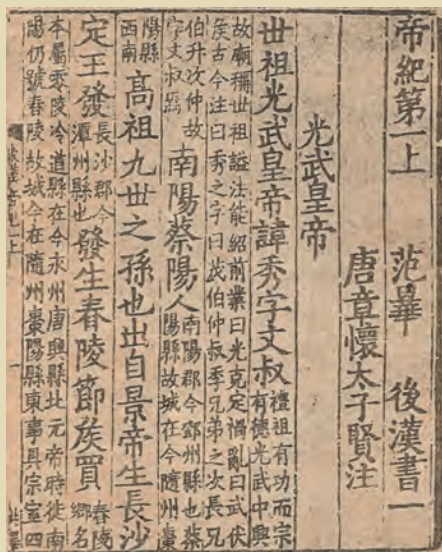 帝紀第一上 范曄 後漢書一
唐章懷太子賢注
光武皇帝
世祖光武皇帝諱秀字文叔禮祖有功而宗有德光武中興
故廟稱世祖謚法能紹前業曰光克定禍亂曰武伏
侯古今注曰秀之字曰茂伯仲叔季兄弟之次長兄
伯升次仲故字文叔焉南陽蔡陽人南陽郡今鄧州縣也蔡陽縣故城在今隨州棗
陽縣西南高祖九世之孫也出自景帝生長沙
定王發長沙郡今潭州縣也發生舂陵節侯買舂陵鄉名
本屬零陵泠道縣在今永州唐興縣北元帝時徙南
陽仍號舂陵故城今在隨州棗陽縣東事具宗室四